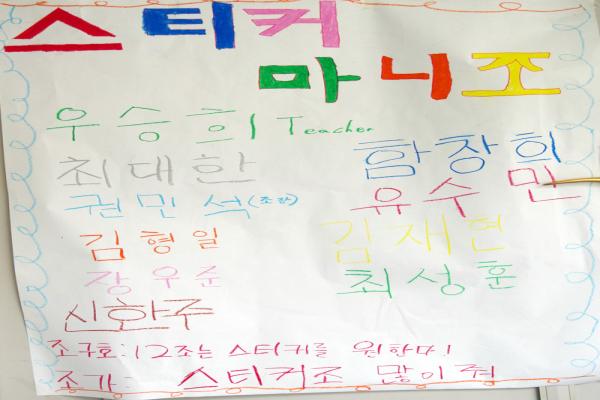 스티커
마니조
우승희 Teacher
최대한
함창희
권민석(조장)
유수민
김형일
김재연
장우준
최성훈
신한주
조구호: 12조는 스티커를 원한다!
조가: 스티커조 많이줘